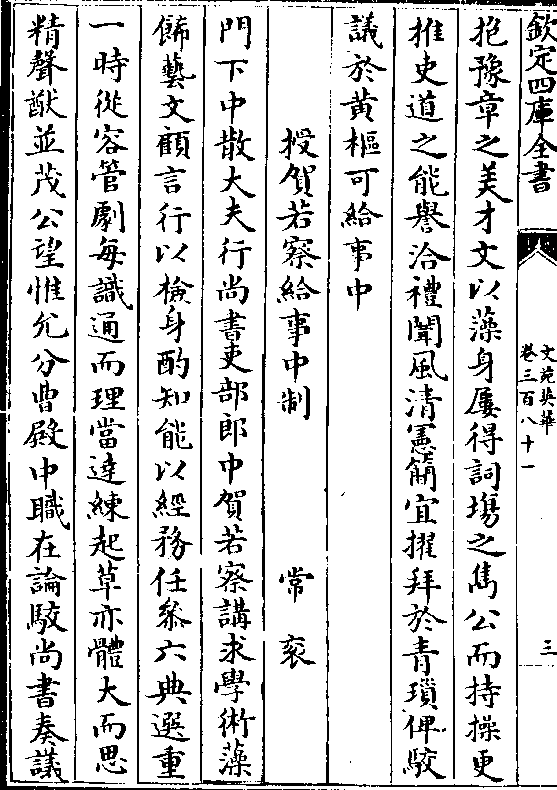 欽定四庫全書
文苑英華
卷三百八十一
三
抱豫章之美才文以藻身屢得詞場之雋公而持操更
推史道之能譽洽禮闈風清憲簡宜擢拜於青瑣俾駮
議於黄樞可給事中
授賀若察給事中制 常衮
門下中散大夫行尚書吏部郎中賀若察講求學術藻
餙藝文顧言行以檢身酌知能以經務任叅六典選重
一時從容管劇每識通而理當達練起草亦體大而思
精聲猷並茂公望惟允分曹殿中職在論駮尚書奏議